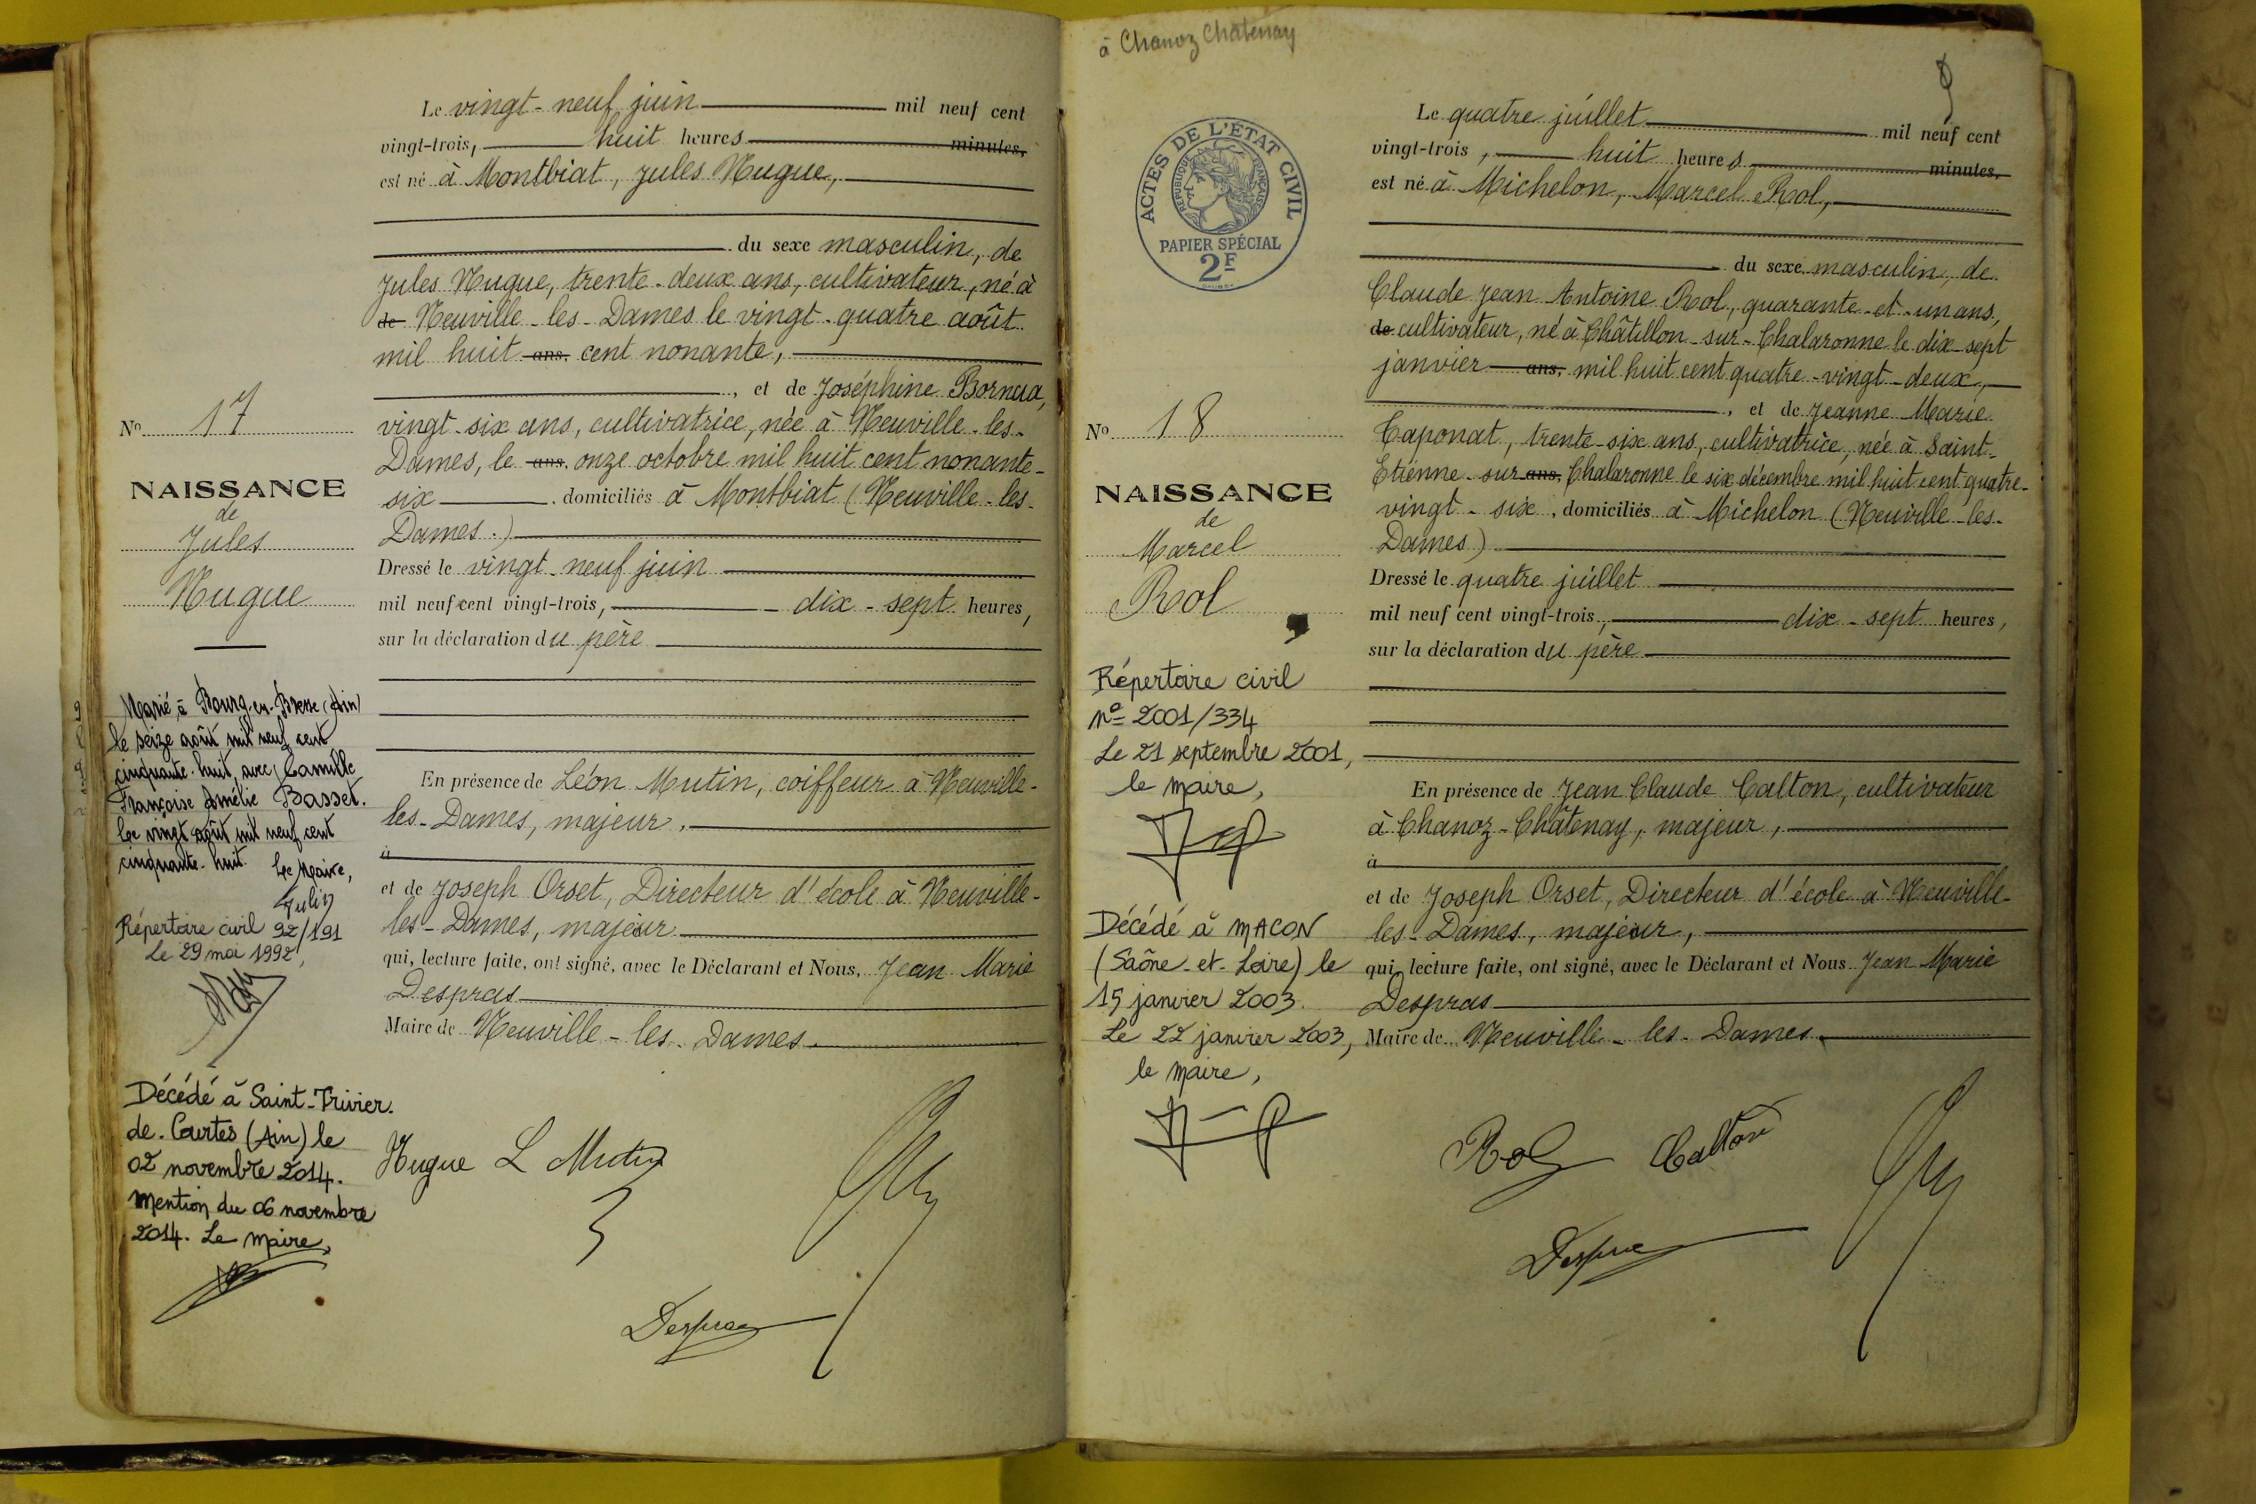 Le vingt-neuf juin mil neuf cent
vingt-trois, huit heures minutes,
est né à Montbiat, Jules Nugue,
du sexe masculin, de
Jules Nugue, trente-deux ans, cultivateur, né à
de Neuville-les-Dames le vingt-quatre août
mil huit ans, cent nonante,
, et de Joséphine
vingt-six ans, cultivatrice, née à Neuville-les-
Dames, le ans, onze octobre mil huit cent nonante-
six domiciliés à Montbiat (Neuville-les-
Dames.)
Dressé le vingt-neuf juin
mil neuf cent vingt-trois, dix-sept heures,
sur la déclaration du père
En présence de Léon Mutin, coiffeur à Neuville-
les-Dames, majeur,
à
et de Joseph Orset, Directeur d'école à Neuville-
les-Dames, majeur
qui, lecture faite, ont signé, avec le Déclarant et Nous, Jean Marie
Despras
Maire de Neuville-les-Dames.
Nugue L Mutin
Despras
No 17
NAISSANCE
de
Jules
Nugue
Marié à Bourg-en-Bresse (Ain)
le seize août mil neuf cent
cinquante-huit, avec Camille
Françoise Amélie Basset.
Le vingt août mil neuf cent
cinquante-huit. Le Maire,
Répertoire civil 92/191
Le 29 mai 1992,
Décédé à Saint-Trivier.
de.Courtes (Ain) le
02 novembre 2014.
Mention du 06 novembre
2014. Le Maire,
à Chanoz Chatenay
ACTES DE L'ÉTAT CIVIL
RÉPUBLIQUE FRANÇAISE
PAPIER SPÉCIAL
2F
No 18
NAISSANCE
de
Marcel
Rol
Répertoire civil
no 2001/334
Le 21 septembre 2001,
le maire,
Décédé à MACON
(Saône-et-Loire) le
15 janvier 2003.
Le 22 janvier 2003,
le maire,
Le quatre juillet mil neuf cent
vingt-trois, huit heures minutes,
est né à Michelon, Marcel Rol,
du sexe masculin, de
Claude Jean Antoine Rol, quarante-et-un ans,
de cultivateur, né à Châtillon-sur-Chalaronne le dix-sept
janvier ans, mil huit cent quatre-vingt-deux,
, et de Jeanne Marie
Taponat, trente-six ans, cultivatrice, née à Saint-
Etienne-sur ans, Chalaronne le six décembre mil huit cent quatre-
vingt-six, domiciliés à Michelon (Neuville-les-
Dames)
Dressé le quatre juillet
mil neuf cent vingt-trois, dix-sept heures,
sur la déclaration du père
En présence de Jean Claude Calton, cultivateur
à Chanoz-Châtenay, majeur,
à
et de Joseph Orset, Directeur d'école à Neuville-
les-Dames, majeur,
qui, lecture faite, ont signé, avec le Déclarant et Nous Jean Marie
Despras
Maire de Neuville-les-Dames.
Rol Calton
Despras